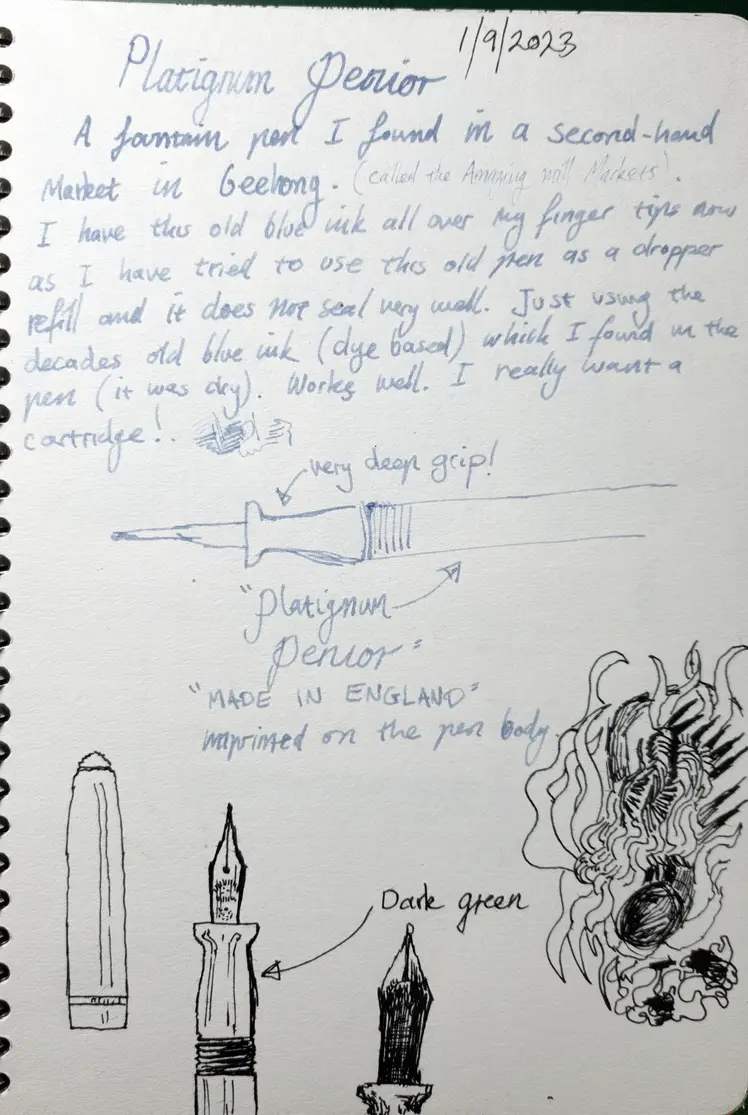 1/9/2023
Platignum Penior
A fountain pen I found in a second-hand
Market in Geelong. (called the Amazing mill Markets).
I have this old blue ink all over my finger tips now
as I have tried to use this old pen as a dropper
refill and it does not seal very well. Just using the
decades old blue ink (dye based) which I found in the
pen (it was dry). Works well. I really want a
cartridge!.
very deep grip!
"Platignum
Penior"
"MADE IN ENGLAND"
imprinted on the pen body.
Dark green